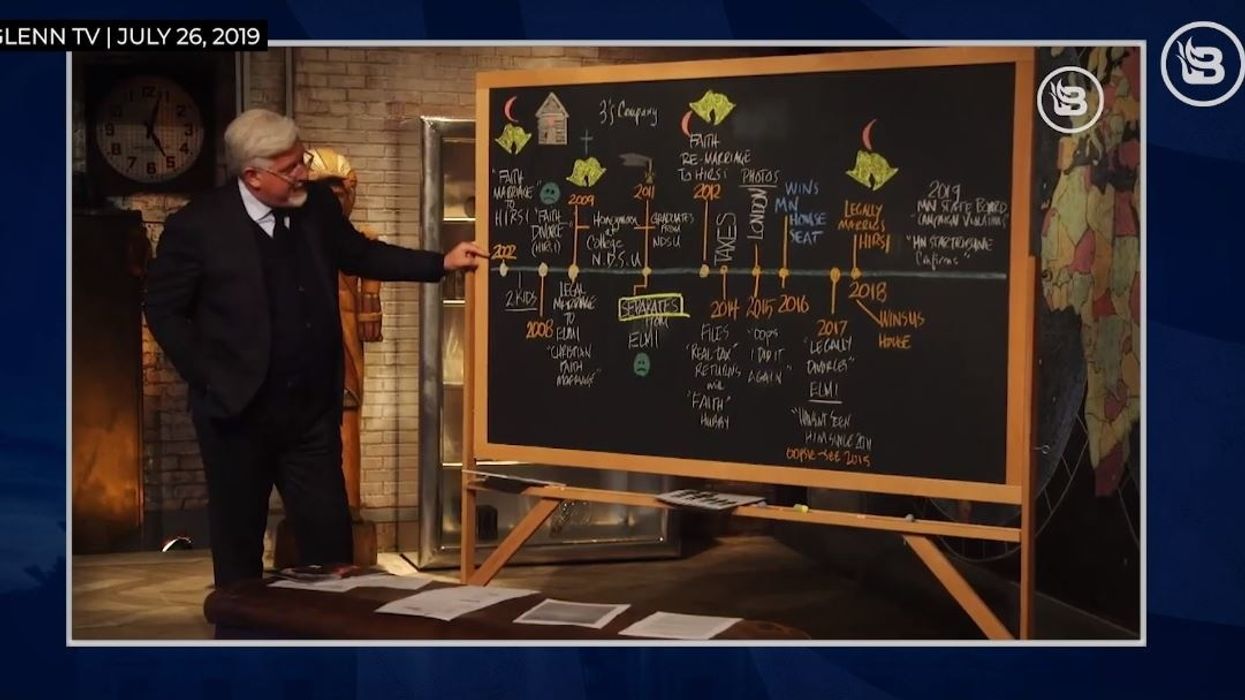 GLENN TV | JULY 26, 2019
B
B
3's Company
"FAITH
MARRIAGE"
TO
HIRSI
2002
2 KIDS
"FAITH
DIVORCE"
(HIRSI)
2008
2009
LEGAL
MARRIAGE
TO
ELMI
"CHRISTIAN
FAITH
MARRIAGE"
Honeymoon
at
College
N.D.S.U
2011
GRADUATES
FROM
NDSU
SEPARATES
FROM
ELMI
FAITH
RE-MARRIAGE
TO HIRSI
2012
TAXES
2014
FILES
"REAL TAX"
RETURNS
"FAITH"
HUBBY
PHOTOS
LONDON
2015
"OOPS
I DID IT
AGAIN"
WINS
MN
HOUSE
SEAT
2016
2017
"LEGALLY
DIVORCES"
ELMI
HIM SINCE 2011
OOPSIE-SEE 2015
LEGALLY
MARRIES
HIRSI
2018
WINS US
HOUSE
2019
MN STATE BOARD
"CAMPAIGN VIOLATIONS"
"MN STAR TRIBUNE
Confirms"